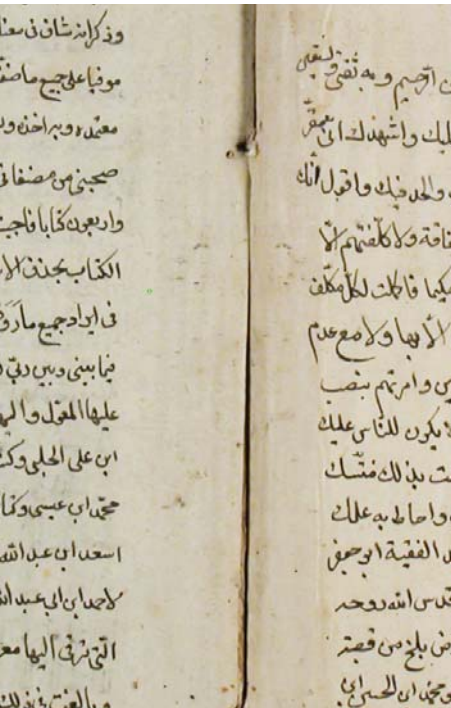 الرحيم وبه ثقتي
ليك واشهدك اني مقر
والحد فيك واقول انك
فاقة ولا كلفتهم الا
لكل مكلف
الا بها ولا مع عدم
وامرتهم بنصب
يكون للناس عليك
بذلك
واحاط به علمك
الفقيه ابو جعفر
قدس الله روحه
بلخ من قصبة
ابن
وذكر انه شاف في معنا
موفيا على جميع ما صنف
معتمده وبه اخذه و
صحبني من مصنفاتي
واربعون كتابا فاجبت
الكتاب بحذف الا
في ايراد جميع ما رووه
فيما بيني وبين ربي
عليها المعول واليها
ابن علي الحلبي وكت
محمد ابن عيسى وكتا
اسعد ابن عبد الله
لاحمد ابن ابي عبد الله
التي اليها معر
وبالغت في ذلك